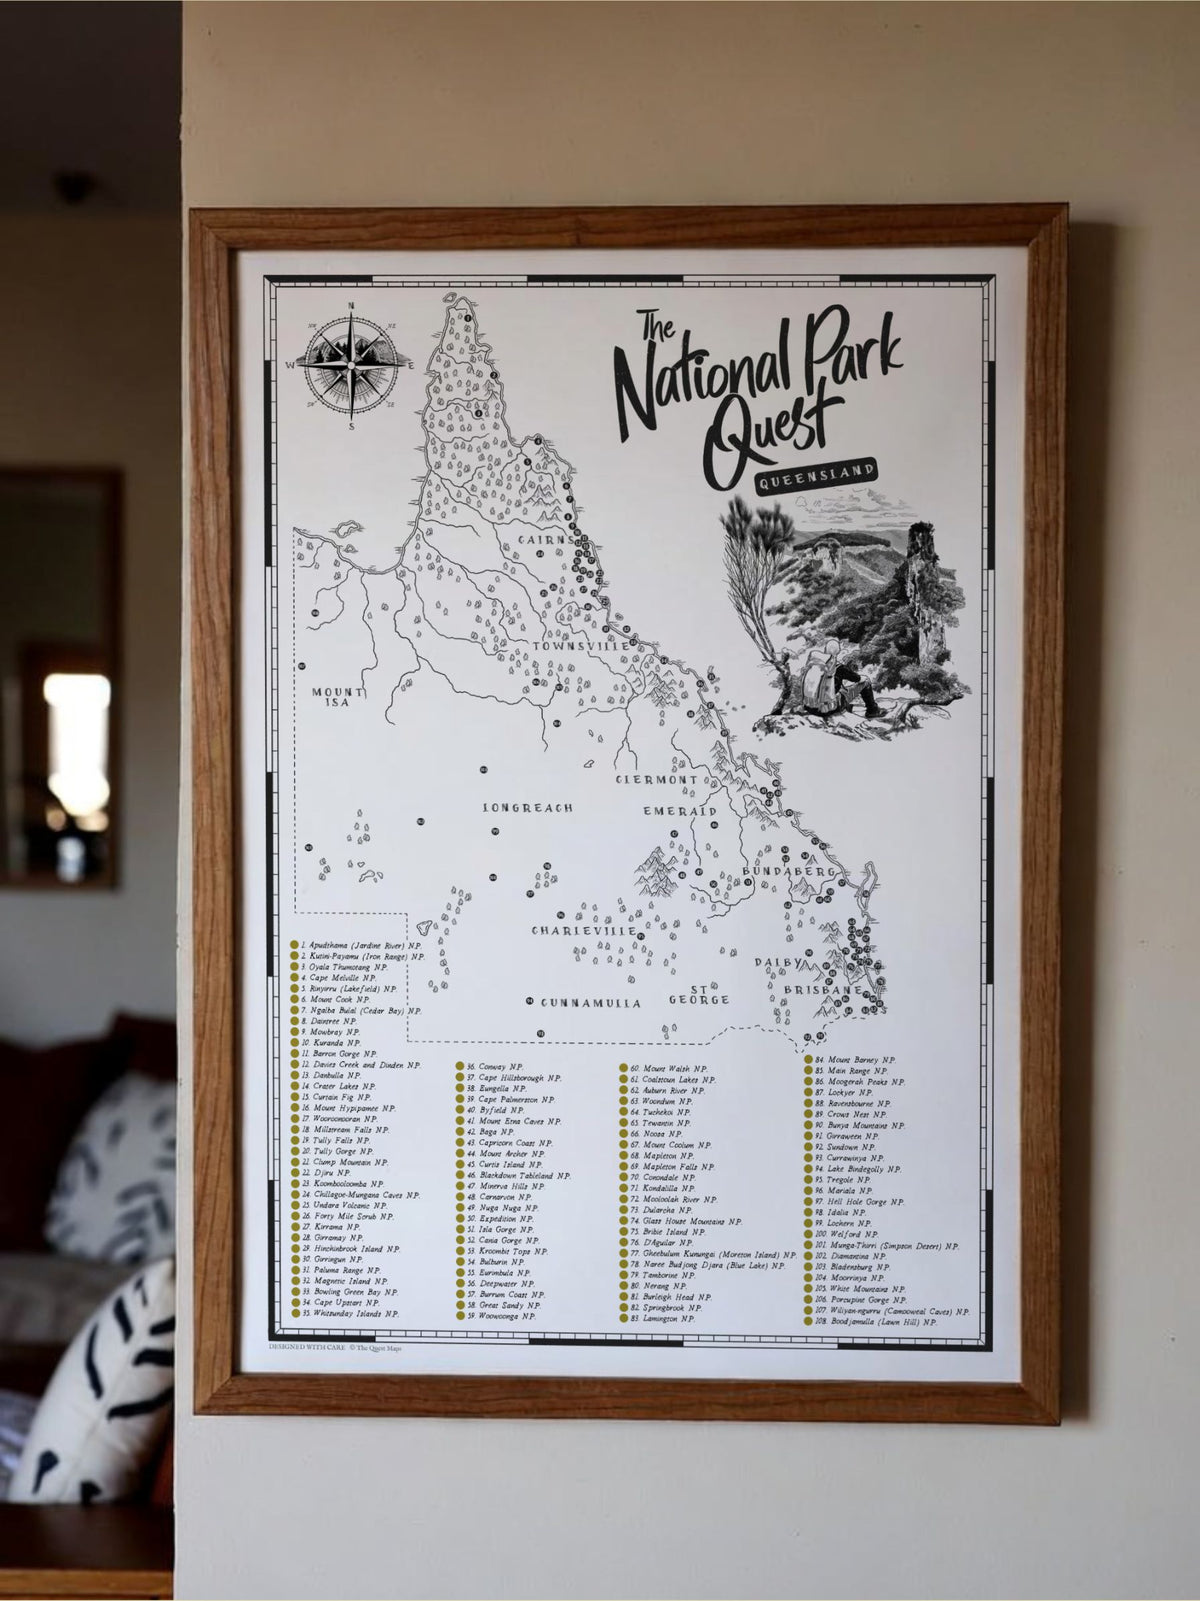 The
National Park
Quest
QUEENSLAND
N
W
E
S
CAIRNS
TOWNSVILLE
MOUNT
ISA
CLERMONT
LONGREACH
EMERALD
BUNDABERG
CHARLEVILLE
DALBY
BRISBANE
ST
GEORGE
CUNNAMULLA
1. Apudthama (Jardine River) N.P.
2. Kutini-Payamu (Iron Range) N.P.
3. Oyala Thumotang N.P.
4. Cape Melville N.P.
5. Rinyirru (Lakefield) N.P.
6. Mount Cook N.P.
7. Ngalba Bulal (Cedar Bay) N.P.
8. Daintree N.P.
9. Mowbray N.P.
10. Kuranda N.P.
11. Barron Gorge N.P.
12. Davies Creek and Dinden N.P.
13. Danbulla N.P.
14. Crater Lakes N.P.
15. Curtain Fig N.P.
16. Mount Hypipamee N.P.
17. Wooroonooran N.P.
18. Millstream Falls N.P.
19. Tully Falls N.P.
20. Tully Gorge N.P.
21. Clump Mountain N.P.
22. Djiru N.P.
23. Koombooloomba N.P.
24. Chillagoe-Mungana Caves N.P.
25. Undara Volcanic N.P.
26. Forty Mile Scrub N.P.
27. Kirrama N.P.
28. Girramay N.P.
29. Hinchinbrook Island N.P.
30. Girringun N.P.
31. Paluma Range N.P.
32. Magnetic Island N.P.
33. Bowling Green Bay N.P.
34. Cape Upstart N.P.
35. Whitsunday Islands N.P.
36. Conway N.P.
37. Cape Hillsborough N.P.
38. Eungella N.P.
39. Cape Palmerston N.P.
40. Byfield N.P.
41. Mount Etna Caves N.P.
42. Baga N.P.
43. Capricorn Coast N.P.
44. Mount Archer N.P.
45. Curtis Island N.P.
46. Blackdown Tableland N.P.
47. Minerva Hills N.P.
48. Carnarvon N.P.
49. Nuga Nuga N.P.
50. Expedition N.P.
51. Isla Gorge N.P.
52. Cania Gorge N.P.
53. Kroombit Tops N.P.
54. Bulburin N.P.
55. Eurimbula N.P.
56. Deepwater N.P.
57. Burrum Coast N.P.
58. Great Sandy N.P.
59. Woowoonga N.P.
60. Mount Walsh N.P.
61. Coalstoun Lakes N.P.
62. Auburn River N.P.
63. Woondum N.P.
64. Tuchekoi N.P.
65. Tewantin N.P.
66. Noosa N.P.
67. Mount Coolum N.P.
68. Mapleton N.P.
69. Mapleton Falls N.P.
70. Conondale N.P.
71. Kondalilla N.P.
72. Mooloolah River N.P.
73. Dularcha N.P.
74. Glass House Mountains N.P.
75. Bribie Island N.P.
76. D'Aguilar N.P.
77. Gheebulum Kunungai (Moreton Island) N.P.
78. Naree Budjong Djara (Blue Lake) N.P.
79. Tamborine N.P.
80. Nerang N.P.
81. Burleigh Head N.P.
82. Springbrook N.P.
83. Lamington N.P.
84. Mount Barney N.P.
85. Main Range N.P.
86. Moogerah Peaks N.P.
87. Lockyer N.P.
88. Ravensbourne N.P.
89. Crows Nest N.P.
90. Bunya Mountains N.P.
91. Girraween N.P.
92. Sundown N.P.
93. Currawinya N.P.
94. Lake Bindegolly N.P.
95. Tregole N.P.
96. Mariala N.P.
97. Hell Hole Gorge N.P.
98. Idalia N.P.
99. Lochern N.P.
100. Welford N.P.
101. Munga-Thirri (Simpson Desert) N.P.
102. Diamantina N.P.
103. Bladensburg N.P.
104. Moorrinya N.P.
105. White Mountains N.P.
106. Porcupine Gorge N.P.
107. Wiliyan-ngurru (Camooweal Caves) N.P.
108. Boodjamulla (Lawn Hill) N.P.
DESIGNED WITH CARE © The Quest Maps